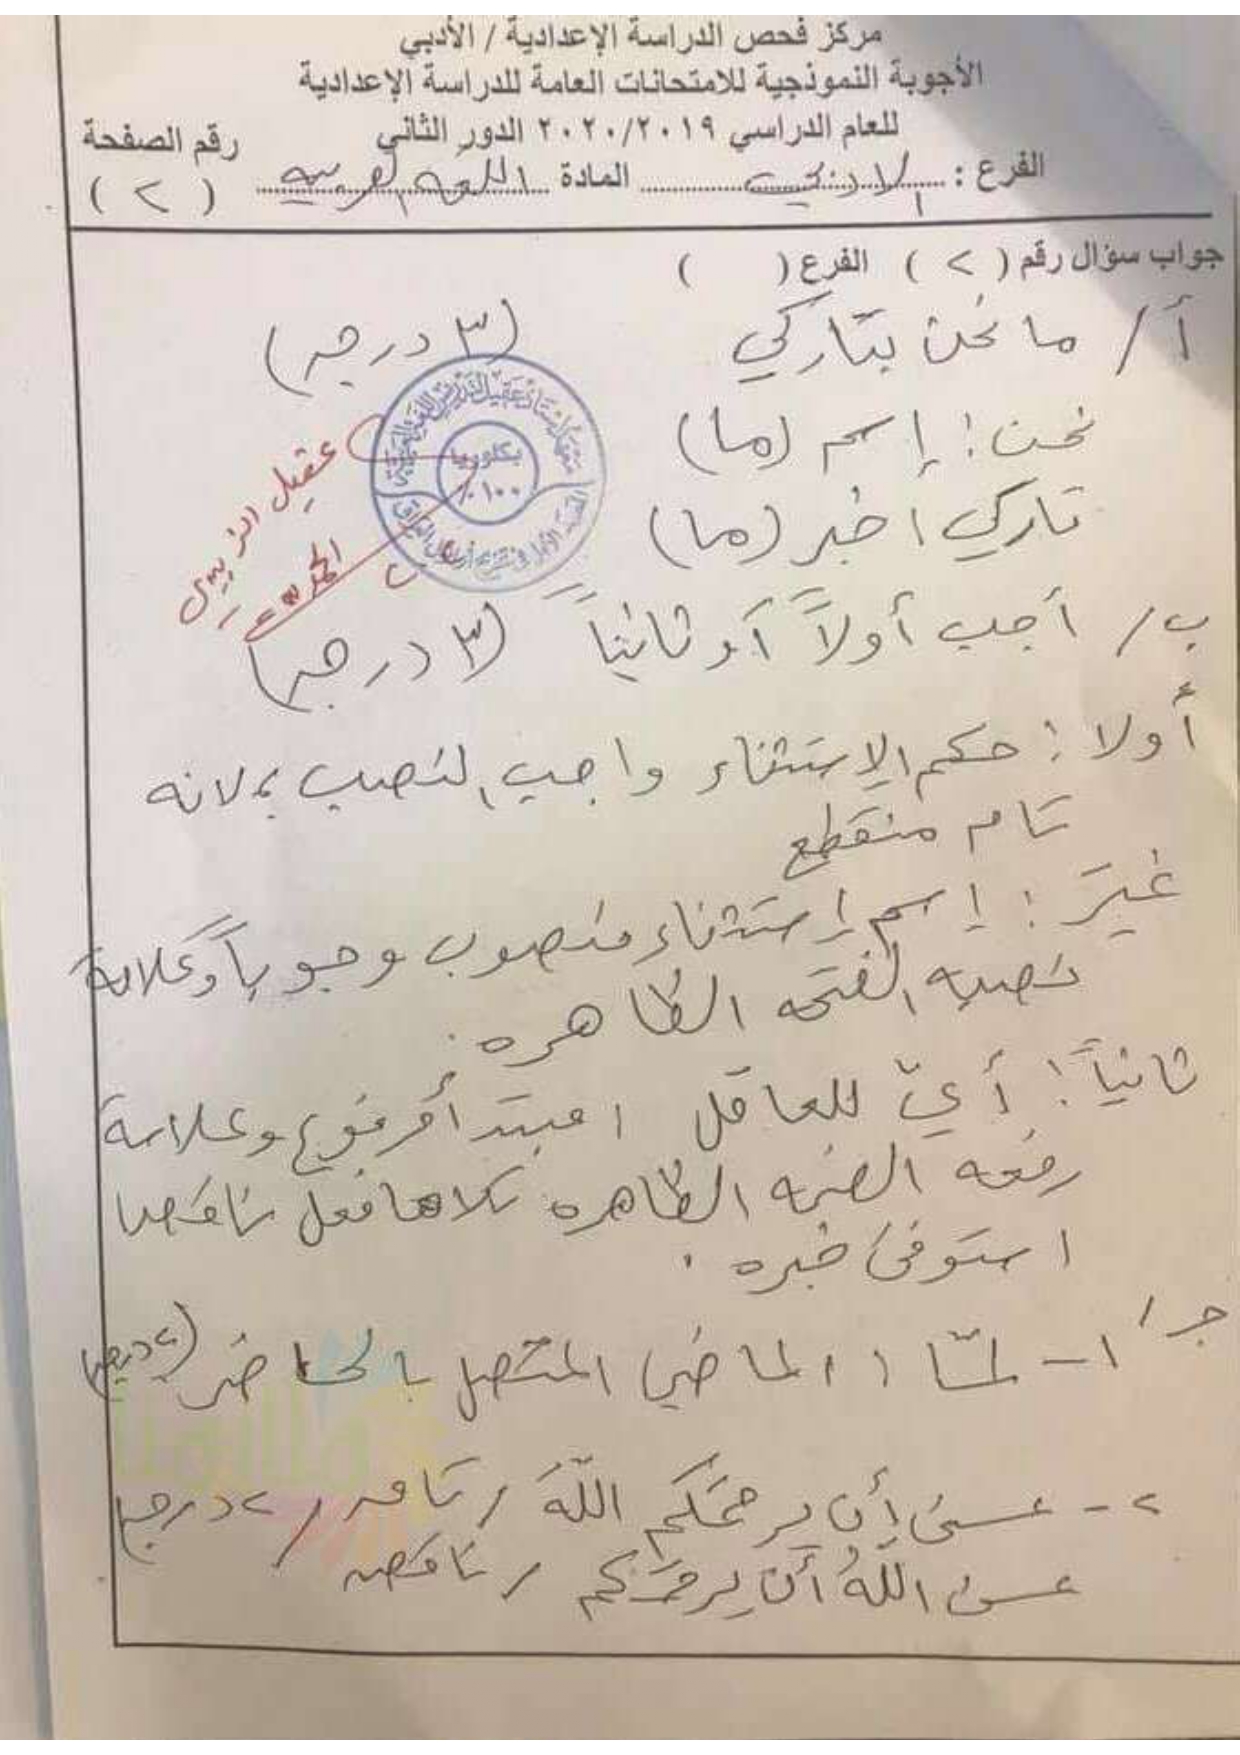 مركز فحص الدراسة الإعدادية / الأدبي
الأجوبة النموذجية للامتحانات العامة للدراسة الإعدادية
للعام الدراسي ٢٠٢٠/٢٠١٩ الدور الثاني
رقم الصفحة
الفرع : الادبي المادة اللغة العربية ( ٢ )
جواب سؤال رقم ( ٢ ) الفرع ( )
أ / ما نحن بتاركي (٣ درجة)
نحن : إسم (ما)
تاركي : خبر (ما)
عقيل الزبيدي
بكلوريا
١٠٠٪
ب / أجب أولاً أو ثانياً (٣ درجة)
أولا : حكم الإستثناء واجب النصب ، لانه
تام منقطع
غيرَ : إسم إستثناء منصوب وجوباً وعلامة
نصبه الفتحه الظاهره .
ثانياً : أيّ للعاقل ، مبتدأ مرفوع وعلامة
رفعه الضمه الظاهره تلاها فعل ناقص
استوفى خبره .
جـ / ١- لمّا : الماضي المتصل بالحاضر (٢ درجة)
٢- عسى أن يرحمَكم اللّهُ / تامه / ٢ درجة
عسى اللّهُ أن يرحمَكم / ناقصه